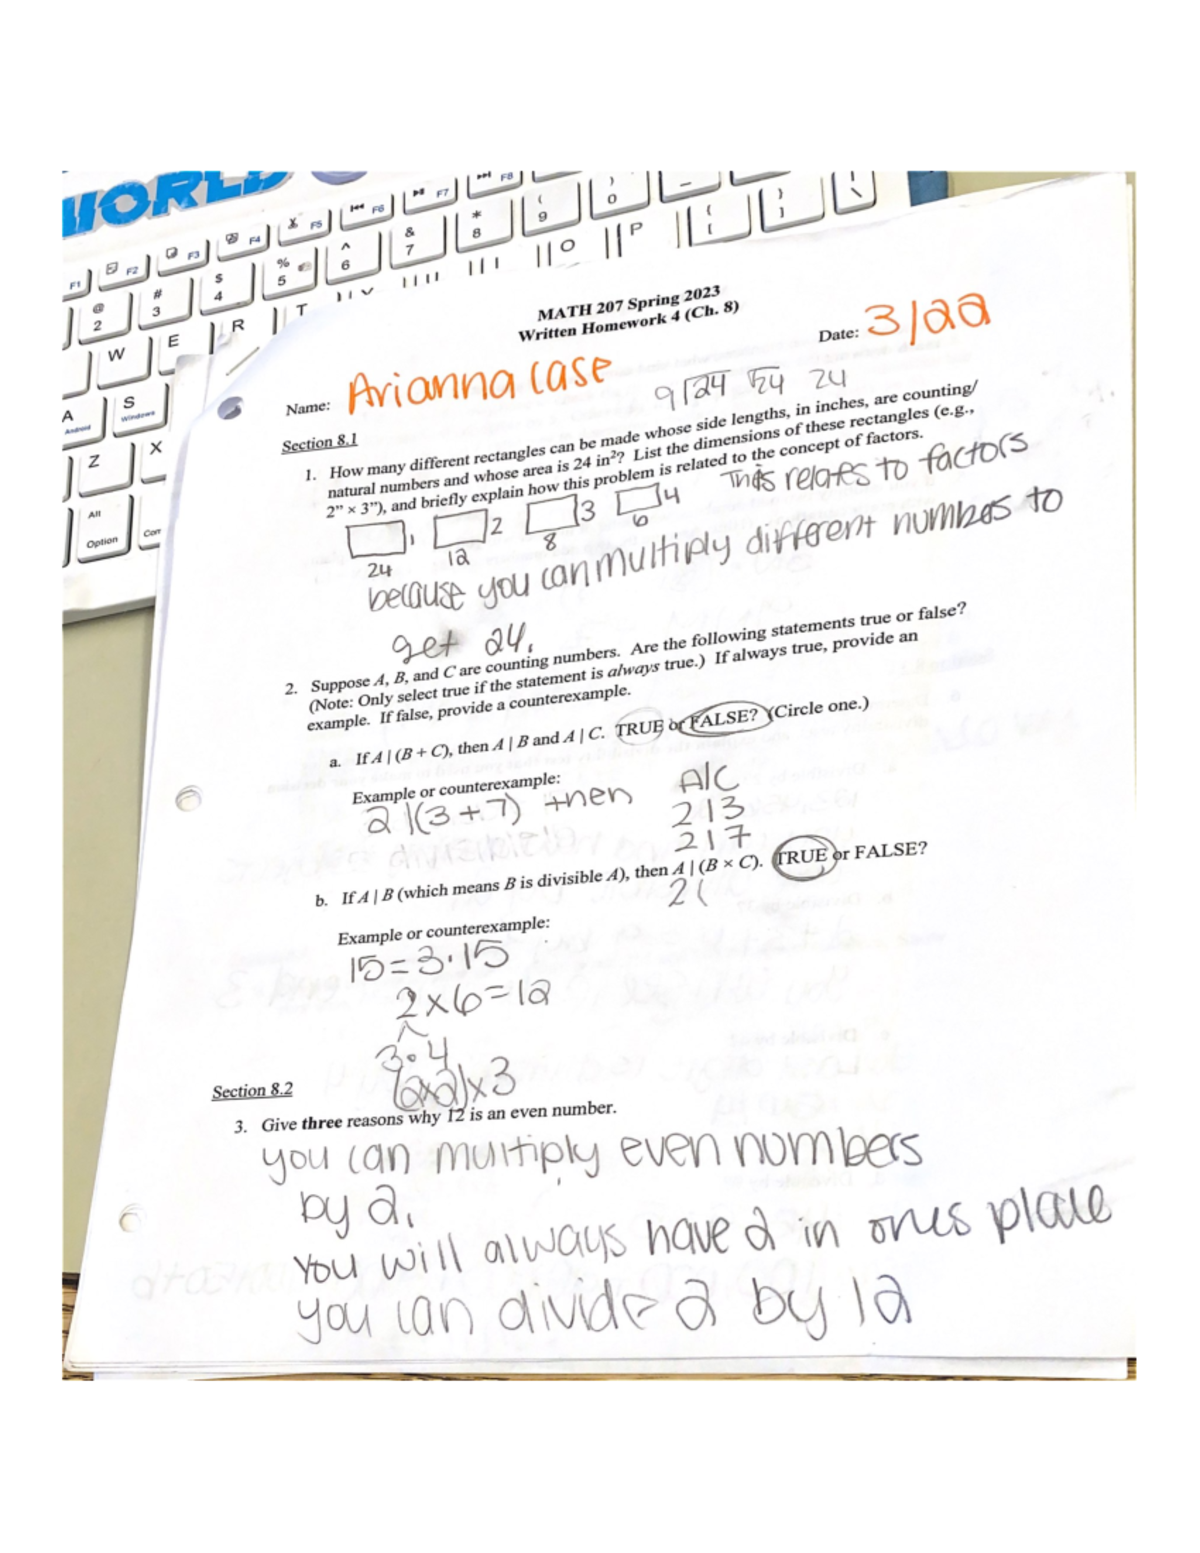 WORLD
F1 F2 F3 F4 F5 F6 F7 F8
@ 2 # 3 $ 4 % 5 ^ 6 & 7 * 8 ( 9 ) 0
W E R T O P
A S
Android Windows
Z X
Alt
Option
MATH 207 Spring 2023
Written Homework 4 (Ch. 8)
Date: 3/22
Name: Arianna Case
9 24 24 24
Section 8.1
1. How many different rectangles can be made whose side lengths, in inches, are counting/
natural numbers and whose area is 24 in²? List the dimensions of these rectangles (e.g.,
2” × 3”), and briefly explain how this problem is related to the concept of factors.
1 2 3 4 This relates to factors
24 12 8 6
because you can multiply different numbers to
get 24.
2. Suppose A, B, and C are counting numbers. Are the following statements true or false?
(Note: Only select true if the statement is always true.) If always true, provide an
example. If false, provide a counterexample.
a. If A | (B + C), then A | B and A | C. TRUE or FALSE? (Circle one.)
Example or counterexample: A|C
2 |(3+7) then 2|3
2|7
b. If A | B (which means B is divisible A), then A | (B × C). TRUE or FALSE?
2(
Example or counterexample:
15=3·15
2×6=12
3·4
(2×2)×3
Section 8.2
3. Give three reasons why 12 is an even number.
you can multiply even numbers
by 2.
You will always have 2 in ones place
you can divide 2 by 12